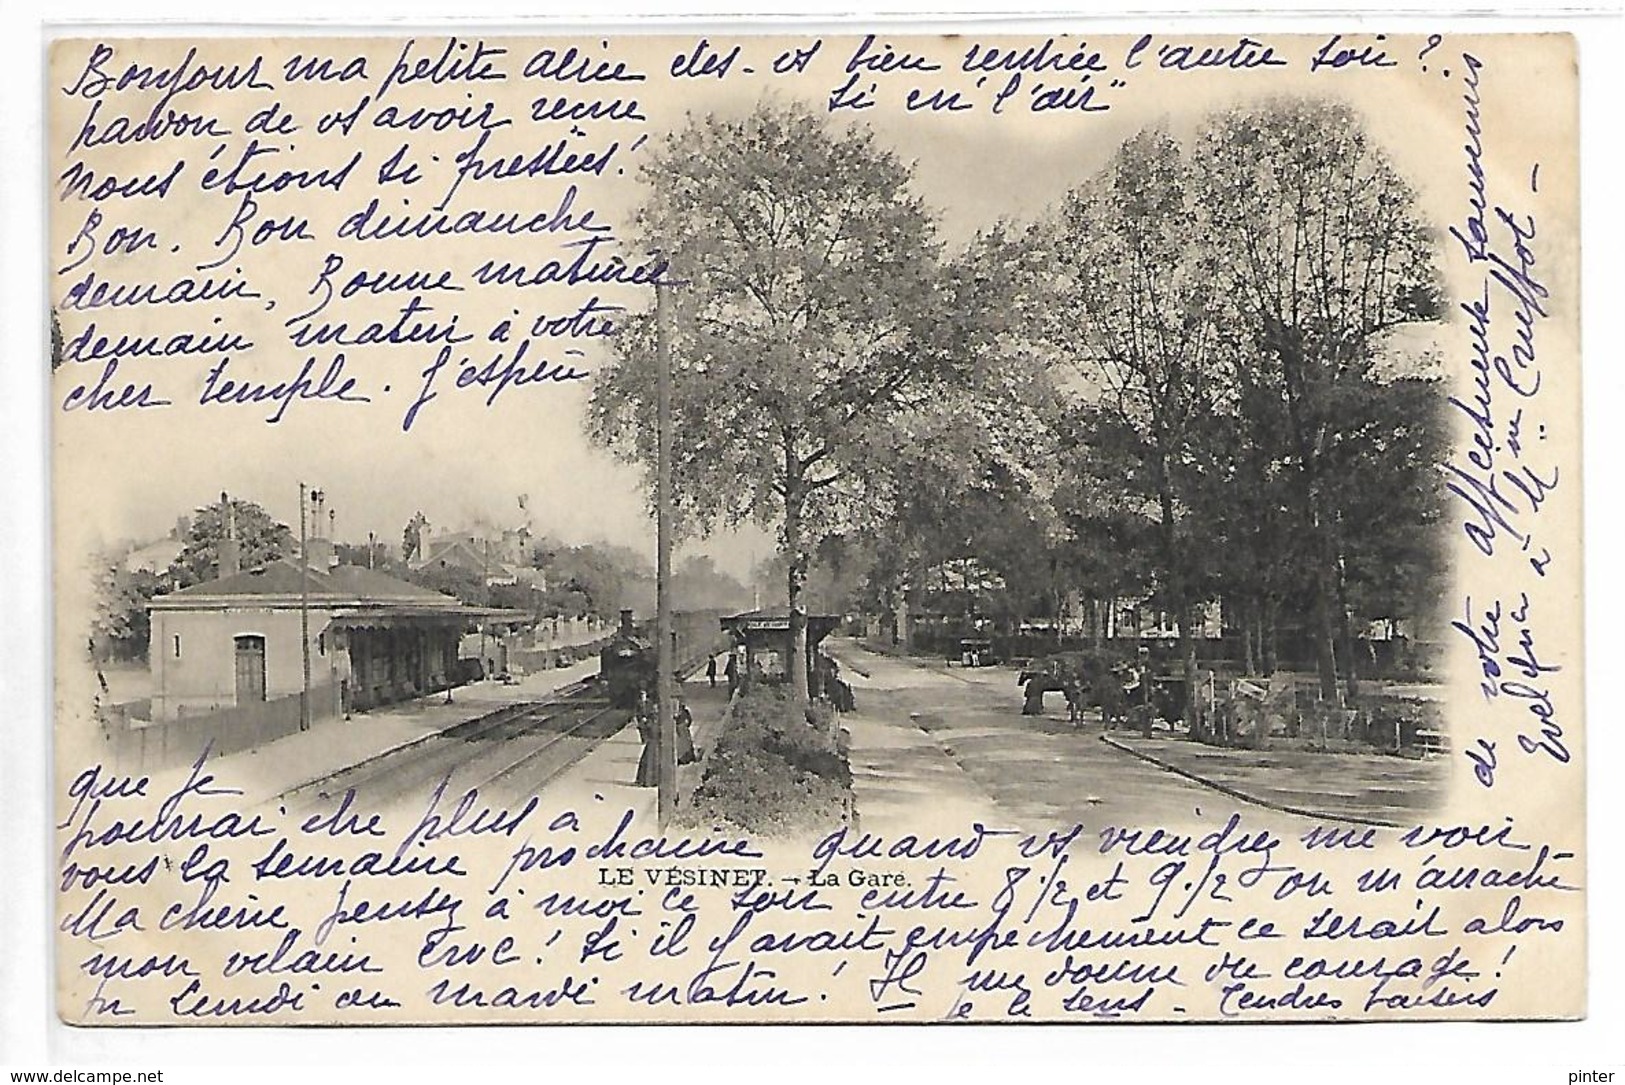 Bonjour ma petite aeiée etes-vs bien rentrée l'autre soir ?
pardon de vs avoir reme si en "l'air"
Nous étions si pressées!
Bon. Bon dimanche
demain, Bonne matinée
demain matin à votre
cher temple. J'espère
que je
pourrai être plus à
vous la semaine prochaine quand vs viendrez me voir
LE VÉSINET. — La Gare.
Ma chérie pensez à moi ce soir entre 8 1/2 et 9 1/2 on m'arrache
mon vilain croc! Si il y avait empechement ce serait alors
pr lundi ou mardi matin! Il me donne du courage!
je le sens - Tendres baisers
de votre affectueuse
à Mm
delcampe.net
pinter